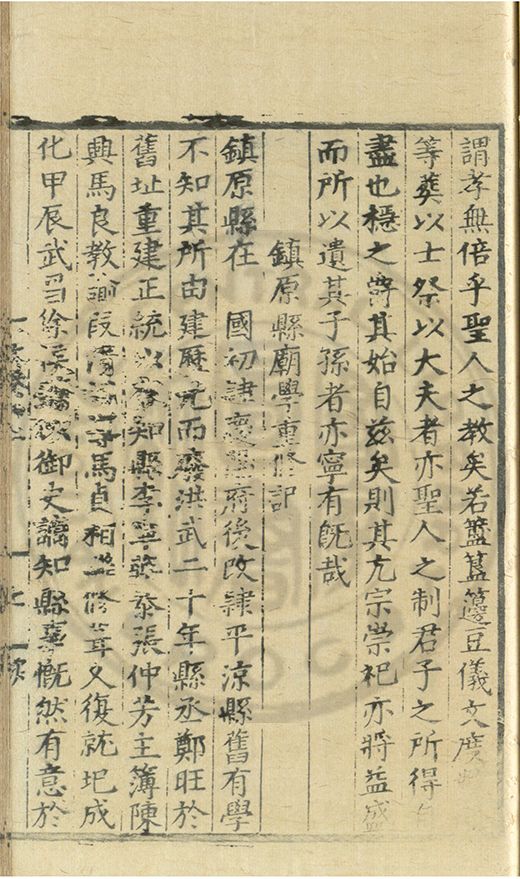 謂孝無倍乎聖人之教矣若簠簋籩豆儀文廣
等葬以士祭以大夫者亦聖人之制君子之所得
盡也穩之將其始自茲矣則其亢宗崇祀亦將益盛
而所以遺其子孫者亦寧有既哉
鎮原縣廟學重修記
鎮原縣在　國初隷慶陽府後改隷平涼縣舊有學
不知其所由建歷元而廢洪武二十年縣丞鄭旺於
舊址重建正統以來知縣李寧蔡泰張仲芳主簿陳
興馬良教諭段馬貞相繼修葺又復就圯成
化甲辰武昌徐御史謫知縣事慨然有意於